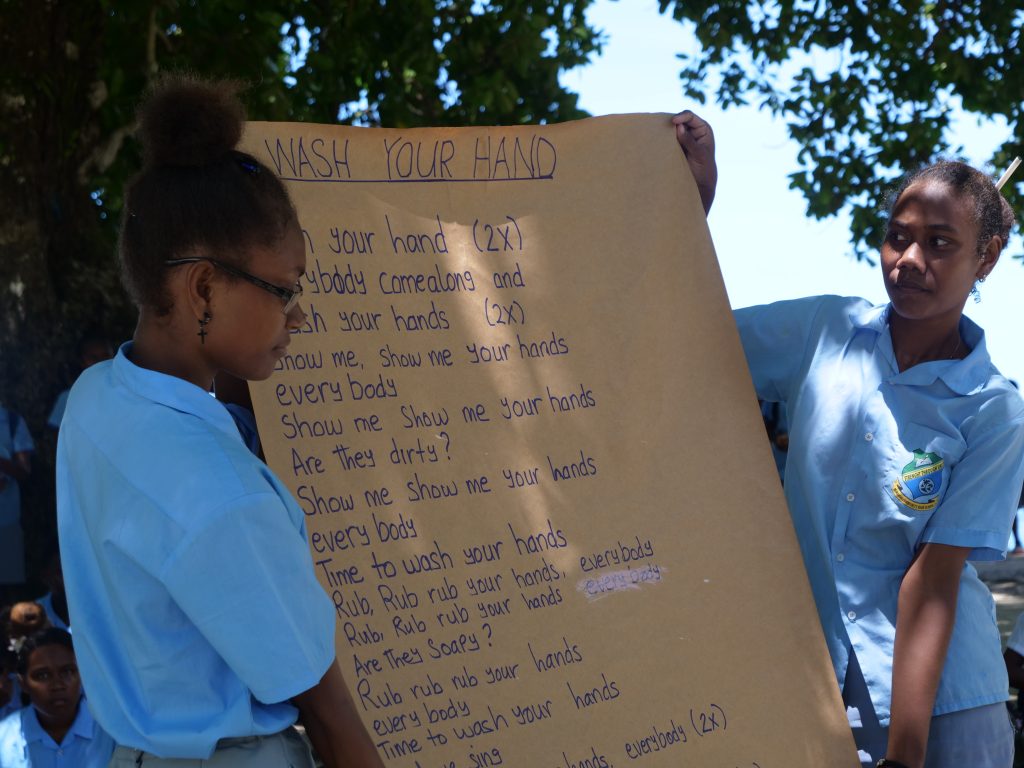 WASH YOUR HAND
your hand (2x)
comealong and
your hands (2x)
Show me, show me your hands
every body
Show me Show me your hands
Are they dirty?
Show me Show me your hands
every body
Time to wash your hands
Rub, Rub rub your hands, everybody
Rub, Rub rub your hands every body
Are they Soapy?
Rub rub rub your hands
every body
Time to wash your hands
sing
your hands, everybody (2x)